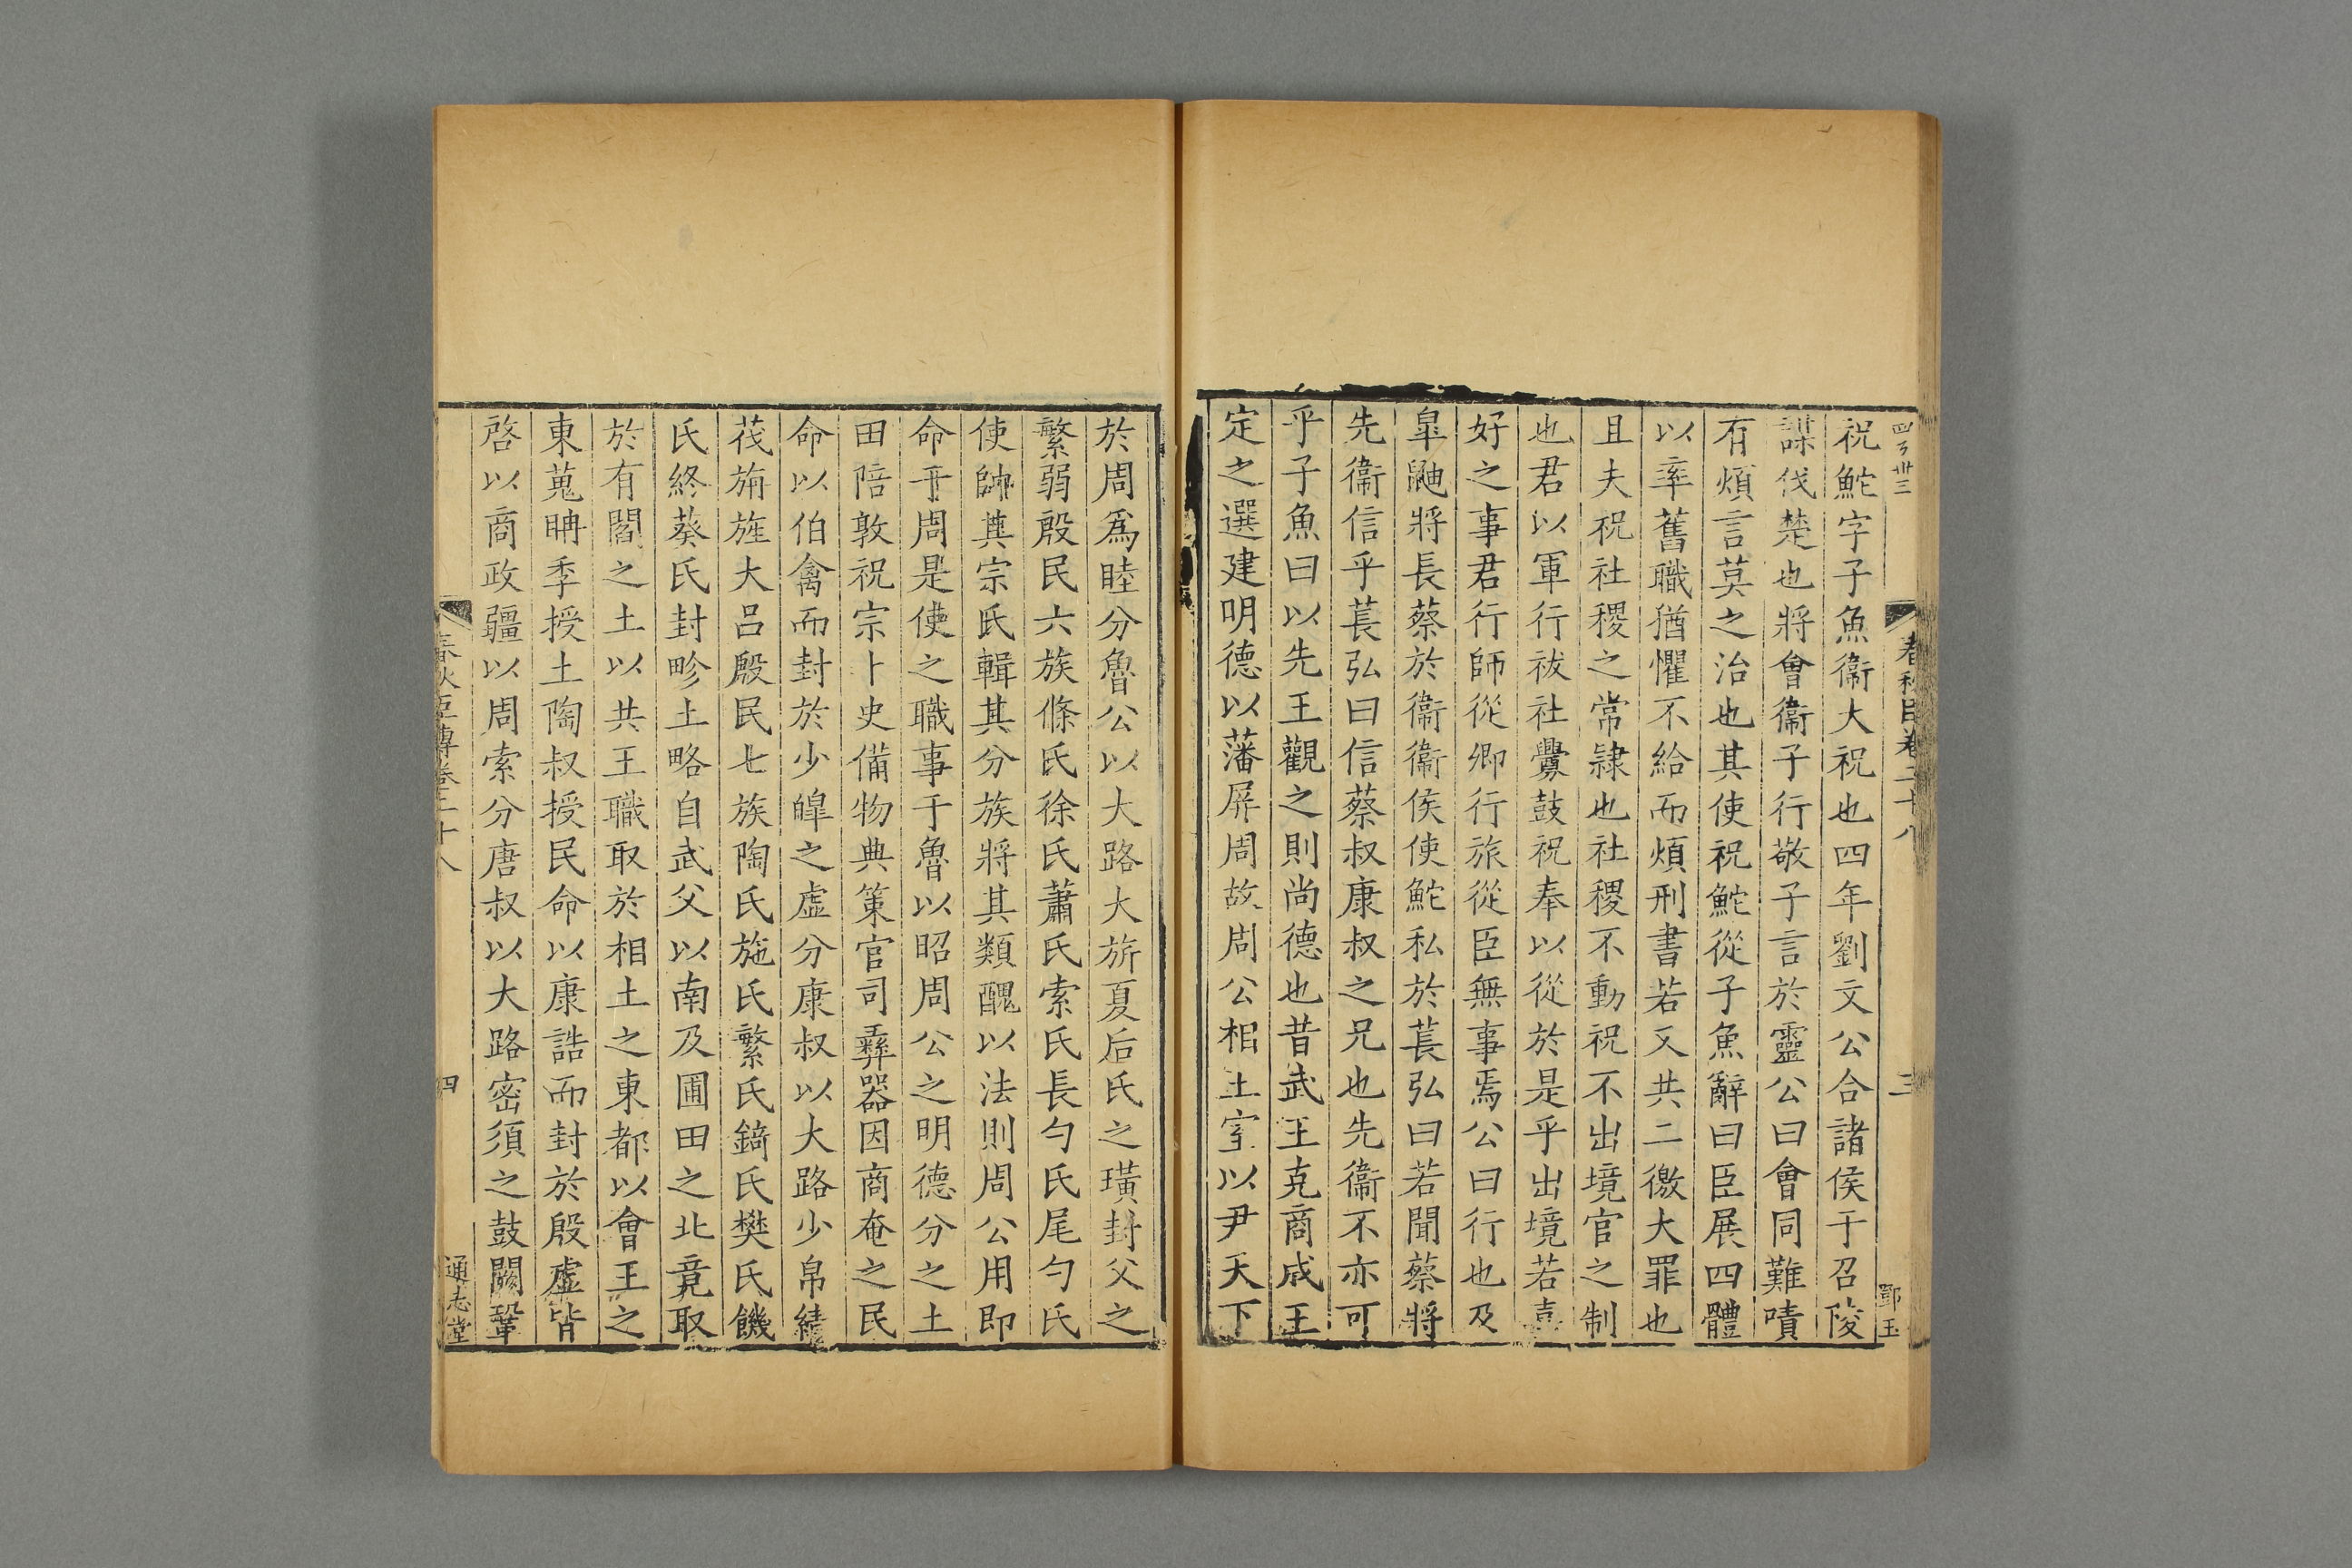 祝鮀字子魚衞大祝也四年劉文公合諸侯于召陵
謀伐楚也將會衞子行敬子言於靈公曰會同難嘖
有煩言莫之治也其使祝鮀從子魚辭曰臣展四體
以率舊職猶懼不給而煩刑書若又共二徼大罪也
且夫祝社稷之常隷也社稷不動祝不出境官之制
也君以軍行祓社釁鼓祝奉以從於是乎出境若嘉
好之事君行師從卿行旅從臣無事焉公曰行也及
臯鼬將長蔡於衞衞侯使鮀私於萇弘曰若聞蔡將
先衞信乎萇弘曰信蔡叔康叔之兄也先衞不亦可
乎子魚曰以先王觀之則尚德也昔武王克商成王
定之選建明德以藩屏周故周公相王室以尹天下
於周爲睦分魯公以大路大旂夏后氏之璜封父之
繁弱殷民六族條氏徐氏蕭氏索氏長勺氏尾勺氏
使帥其宗氏輯其分族將其類醜以法則周公用即
命于周是使之職事于魯以昭周公之明德分之土
田陪敦祝宗卜史備物典策官司彝器因商奄之民
命以伯禽而封於少皥之虛分康叔以大路少帛綪
茷旃旌大呂殷民七族陶氏施氏繁氏錡氏樊氏饑
氏終葵氏封畛土略自武父以南及圃田之北竟取
於有閻之土以共王職取於相土之東都以會王之
東蒐聃季授土陶叔授民命以康誥而封於殷虛皆
啓以商政疆以周索分唐叔以大路密須之鼓闕鞏
春秋臣傳卷二十八
四
通志堂